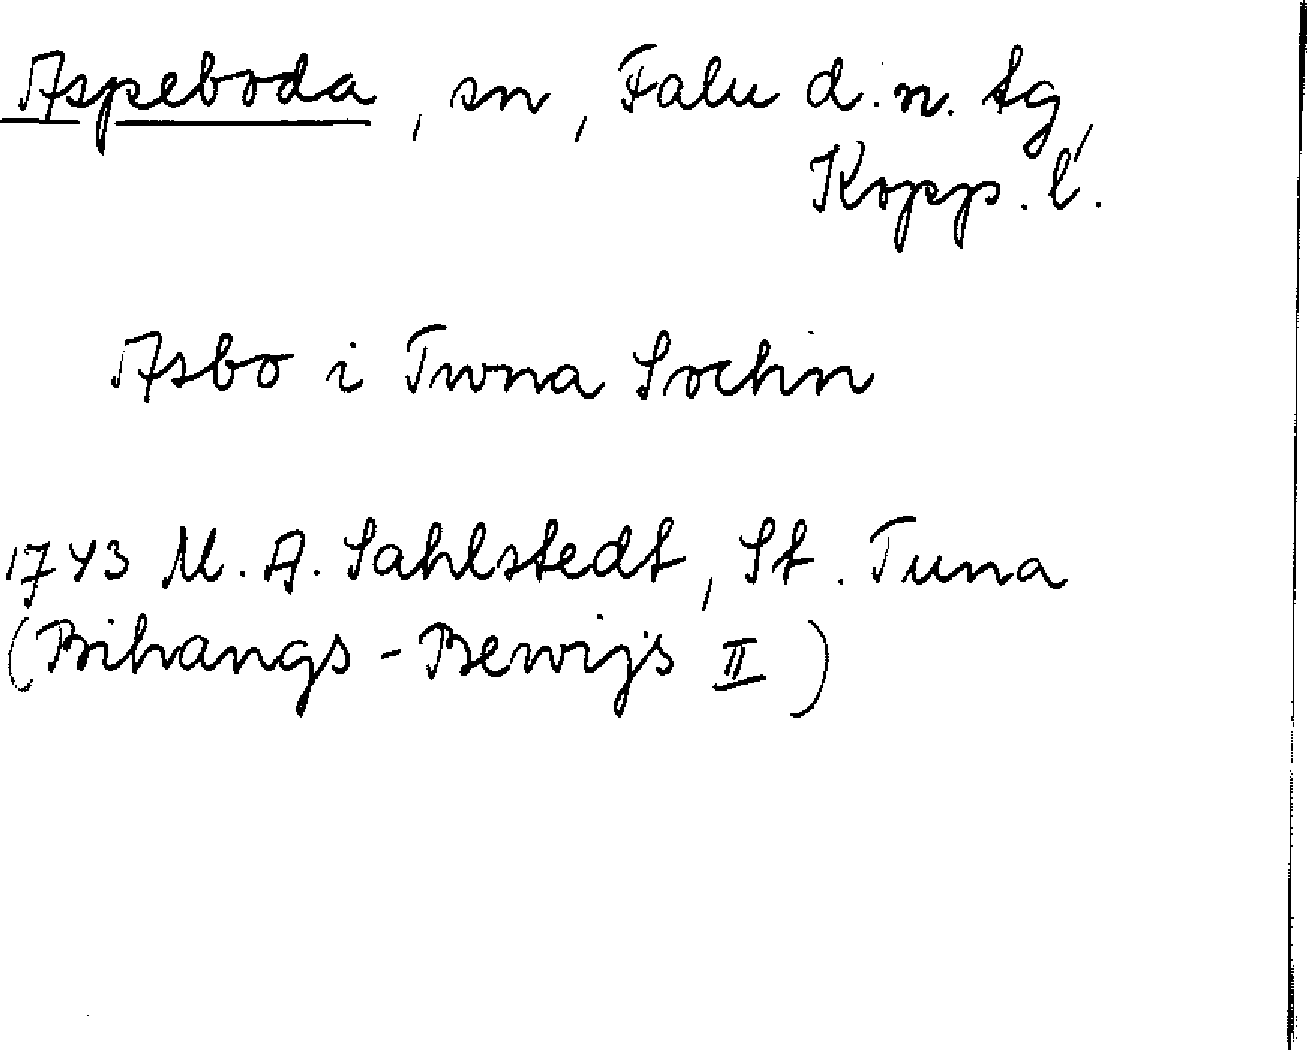 Aspeboda, sn, Falu d.n. tg,
Kopp. l.
Asbo i Twna Sochn
1743 M. A. Sahlstedt, St. Tuna
(Bihangs-Bewijs II)